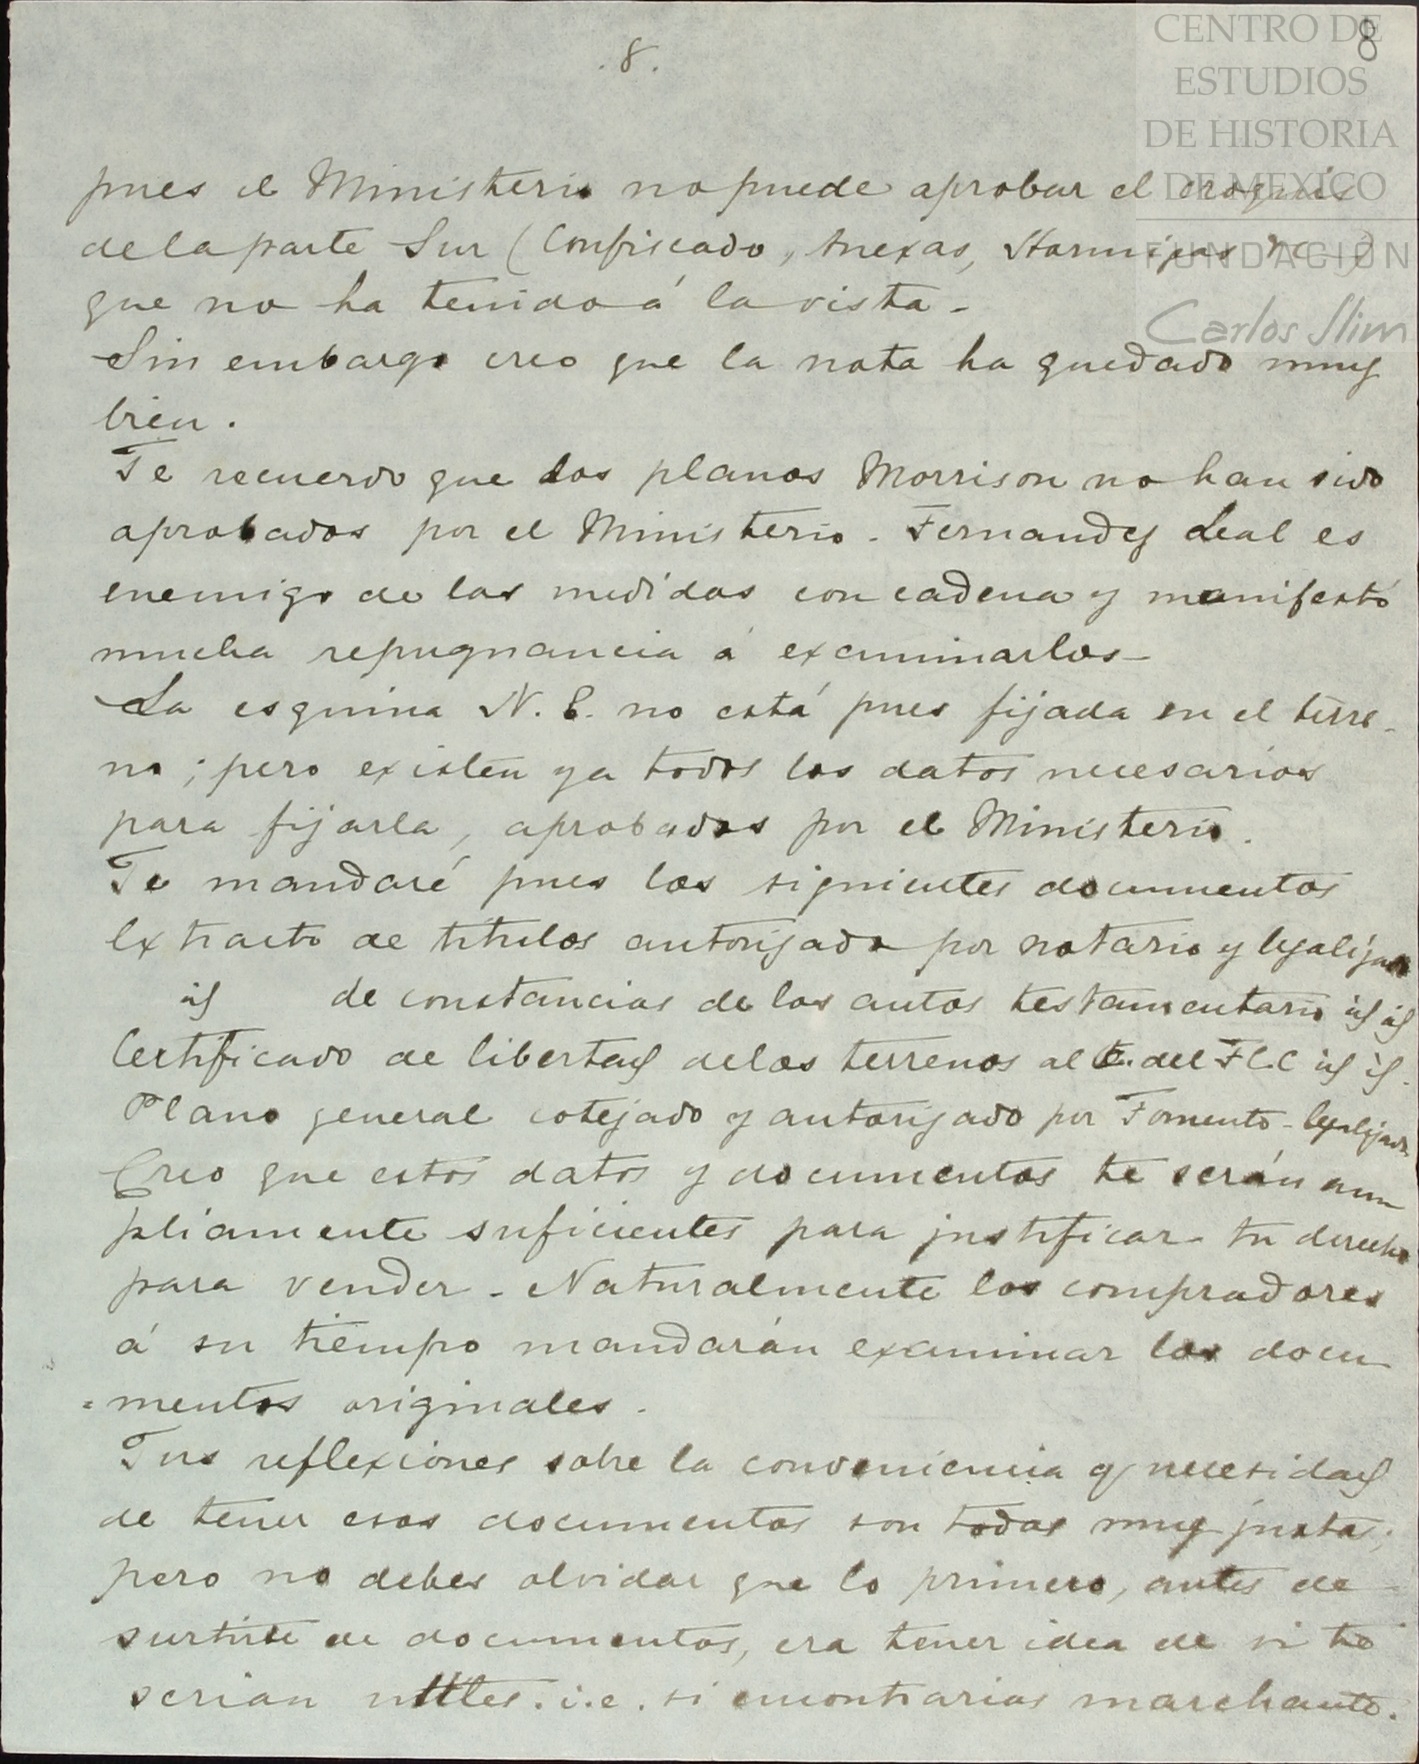 .8.
8
CENTRO DE
ESTUDIOS
DE HISTORIA
DE MEXICO
FUNDACIÓN
Carlos Slim
pues el Ministerio no puede aprobar el croquis
de la parte Sur (Confiscado, Anexas, Hormigas &c)
que no ha tenido á la vista.
Sin embargo creo que la nota ha quedado muy
bien.
Te recuerdo que los planos Morrison no han sido
aprobados por el Ministerio. Fernandez Leal es
enemigo de las medidas con cadena y manifestó
mucha repugnancia á examinarlos_
La esquina N. E. no está pues fijada en el terre-
no; pero existen ya todos los datos necesarios
para fijarla, aprobados por el Ministerio.
Te mandaré pues los siguientes documentos
Extracto de titulos autorizado por notario y legalizado
id de constancias de los autos testamentario id id
Certificado de libertad de los terrenos al E. del F.C.C id id.
Plano general cotejado y autorizado por Fomento - legalizado.
Creo que estos datos y documentos te serán am
pliamente suficientes para justificar tu derecho
para vender. Naturalmente los compradores
á su tiempo mandarán examinar los docu
=mentos originales.
Tus reflexiones sobre la conveniencia y necesidad
de tener esos documentos son todas muy justas;
pero no debes olvidar que lo primero, antes de
surtirte de documentos, era tener idea de si te
serian utiles. i.e. si encontrarias marchante.